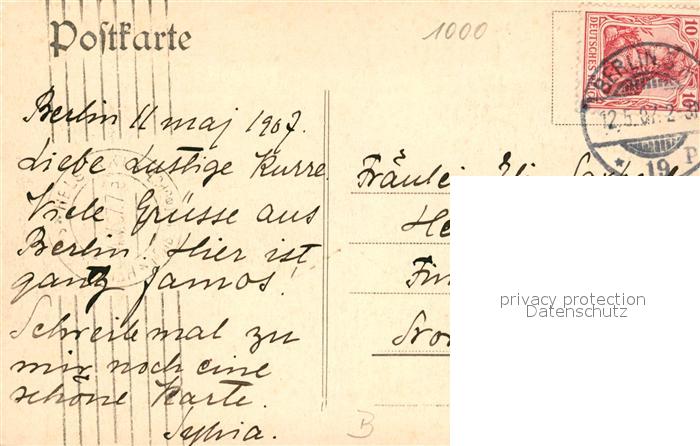 Postkarte
1000
10
10
DEUTSCHES
BERLIN S
12.5.07.2-3
* 19 P
Berlin 11 maj 1907.
Liebe Lustige Kurre
Viele Grüsse aus
Berlin! Hier ist
ganz famos!
Schreibe mal zu
mir noch eine
schöne Karte.
Sylvia.
Fräulein
He
Fin
privacy protection
Datenschutz
B